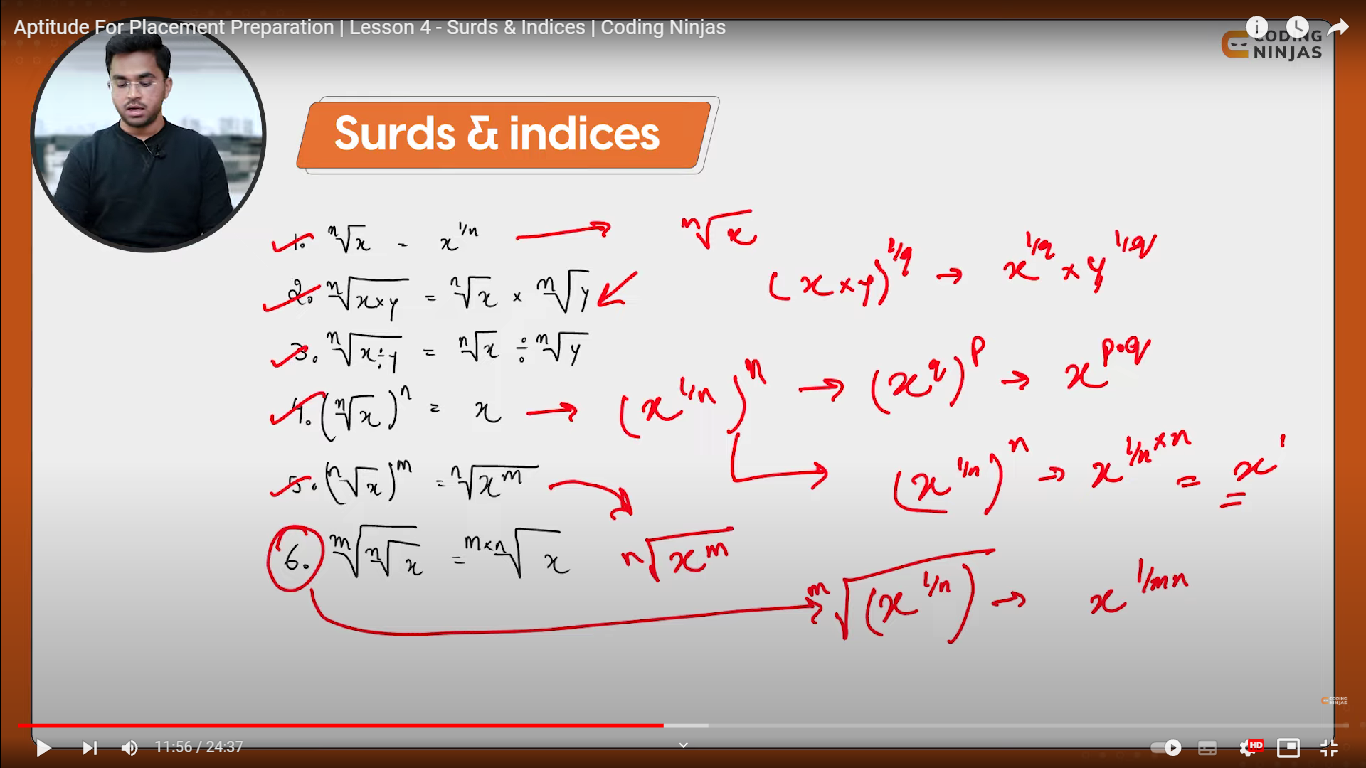 Aptitude For Placement Preparation | Lesson 4 - Surds & Indices | Coding Ninjas
CODING
NINJAS
Surds & indices
1. ⁿ√x = x^1/n → ⁿ√x
(x×y)^1/q → x^1/q × y^1/q
2. ⁿ√x×y = ⁿ√x × ⁿ√y
3. ⁿ√x÷y = ⁿ√x ÷ ⁿ√y
4. (ⁿ√x)^n = x → (x^1/n)^n → (x^q)^p → x^p·q
(x^1/n)^n → x^1/n×n = x^1
5. (ⁿ√x)^m = ⁿ√x^m
ⁿ√x^m
6. ᵐ√ⁿ√x = ᵐ×ⁿ√x
ᵐ√(x^1/n) → x^1/mn
CODING
NINJAS
11:56 / 24:37
HD